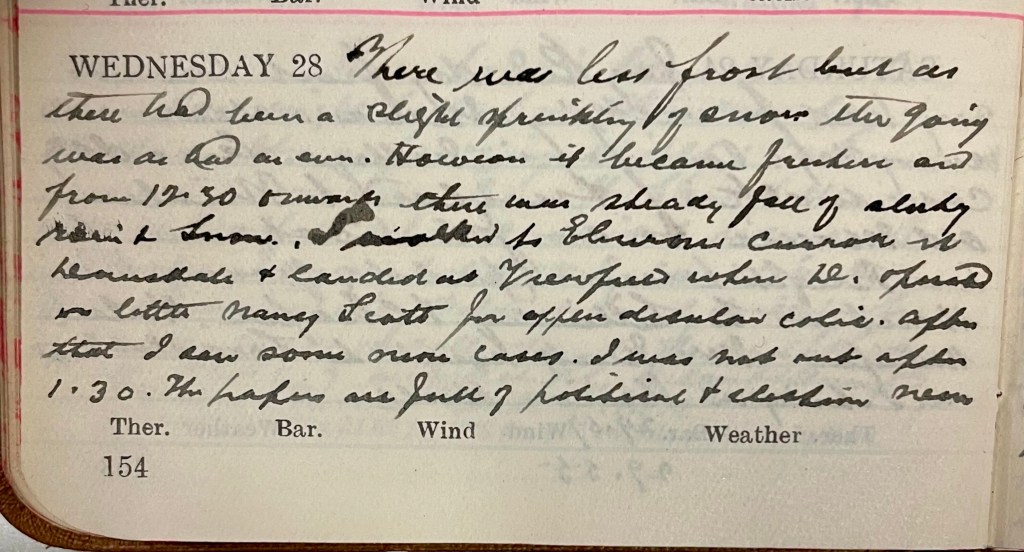 WEDNESDAY 28 There was less frost but as
there had been a slight sprinkling of snow the going
was as bad as ever. However it became fresher and
from 12.30 onwards there was steady fall of slushy
rain & Snow. I walked to
& landed at Viewfield when D. operated
on little Nancy Scott for appendicular colic. After
that I saw some more cases. I was not out after
1.30. The papers are full of political & election news
Ther. Bar. Wind Weather
154